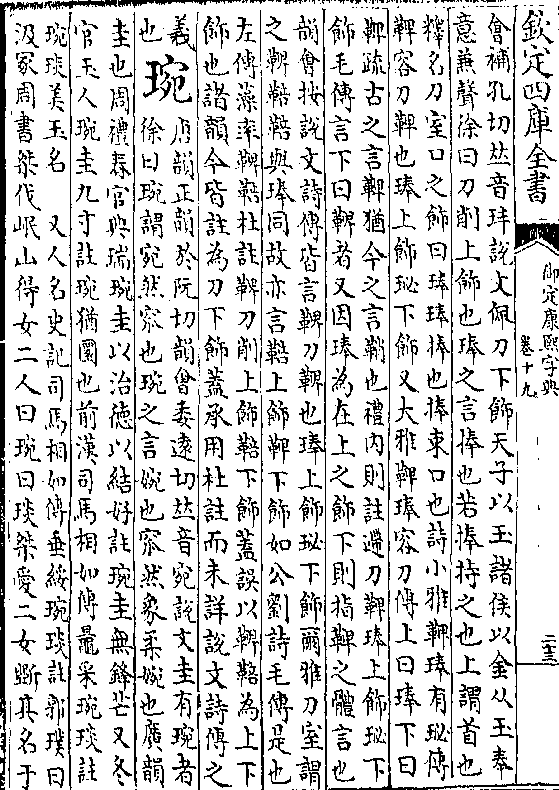 欽定四庫全書
御定康熙字典
卷十九
二十三
會補孔切𠀤音琫說文佩刀下飾天子以玉諸侯以金从玉奉
意兼聲徐曰刀削上飾也琫之言捧也若捧持之也上謂首也
釋名刀室口之飾曰琫琫捧也捧束口也詩小雅鞞琫有珌傳
鞞容刀鞞也琫上飾珌下飾又大雅鞞琫容刀傳上曰琫下曰
鞞疏古之言鞞猶今之言鞘也禮內則註遰刀鞞琫上飾珌下
飾毛傳言下曰鞞者又因琫為在上之飾下則指鞞之體言也
韻會按說文詩傳皆言鞞刀鞞也琫上飾珌下飾爾雅刀室謂
之鞞鞛鞛與琫同故亦言鞛上飾鞞下飾如公劉詩毛傳是也
左傳藻率鞞鞛杜註鞞刀削上飾鞛下飾蓋誤以鞞鞛為上下
飾也諸韻今皆註為刀下飾蓋承用杜註而未詳說文詩傳之
義也
琬
唐韻正韻於阮切韻會委遠切𠀤音宛說文圭有琬者
徐曰琬謂宛然窊也琬之言婉也窊然象柔婉也廣韻
圭也周禮春官典瑞琬圭以治德以結好註琬圭無鋒芒又冬
官玉人琬圭九寸註琬猶圜也前漢司馬相如傳鼂采琬琰註
琬琰美玉名　又人名史記司馬相如傳垂綏琬琰註郭璞曰
汲冢周書桀伐岷山得女二人曰琬曰琰桀愛二女斵其名于